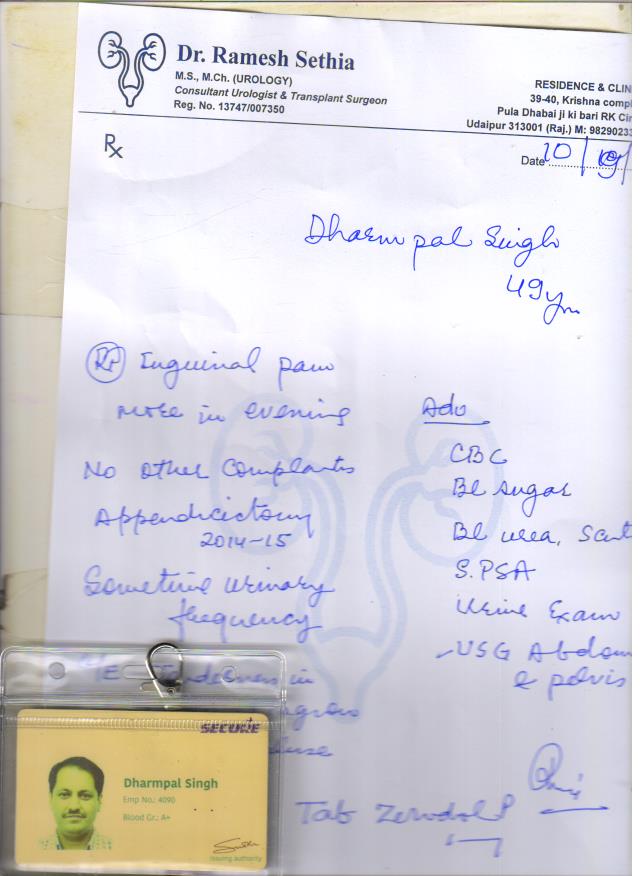 Dr. Ramesh Sethia
M.S., M.Ch. (UROLOGY)
Consultant Urologist & Transplant Surgeon
Reg. No. 13747/007350
RESIDENCE & CLIN
39-40, Krishna compl
Pula Dhabai ji ki bari RK Cir
Udaipur 313001 (Raj.) M: 9829023
Rx
Date 10/
Dharmpal Singh
49 yrs
Rt Inguinal pain
more in evening
No other complaints
Appendicictomy
2014-15
Sometime urinary
frequency
Tenderness in
Adv
CBC
Bl sugar
Bl urea,
S.PSA
Urine Exam
USG Abdom
& pelvis
Tab Zerodol P
SECURE
Dharmpal Singh
Emp No.: 4090
Blood Gr.: A+
Issuing authority